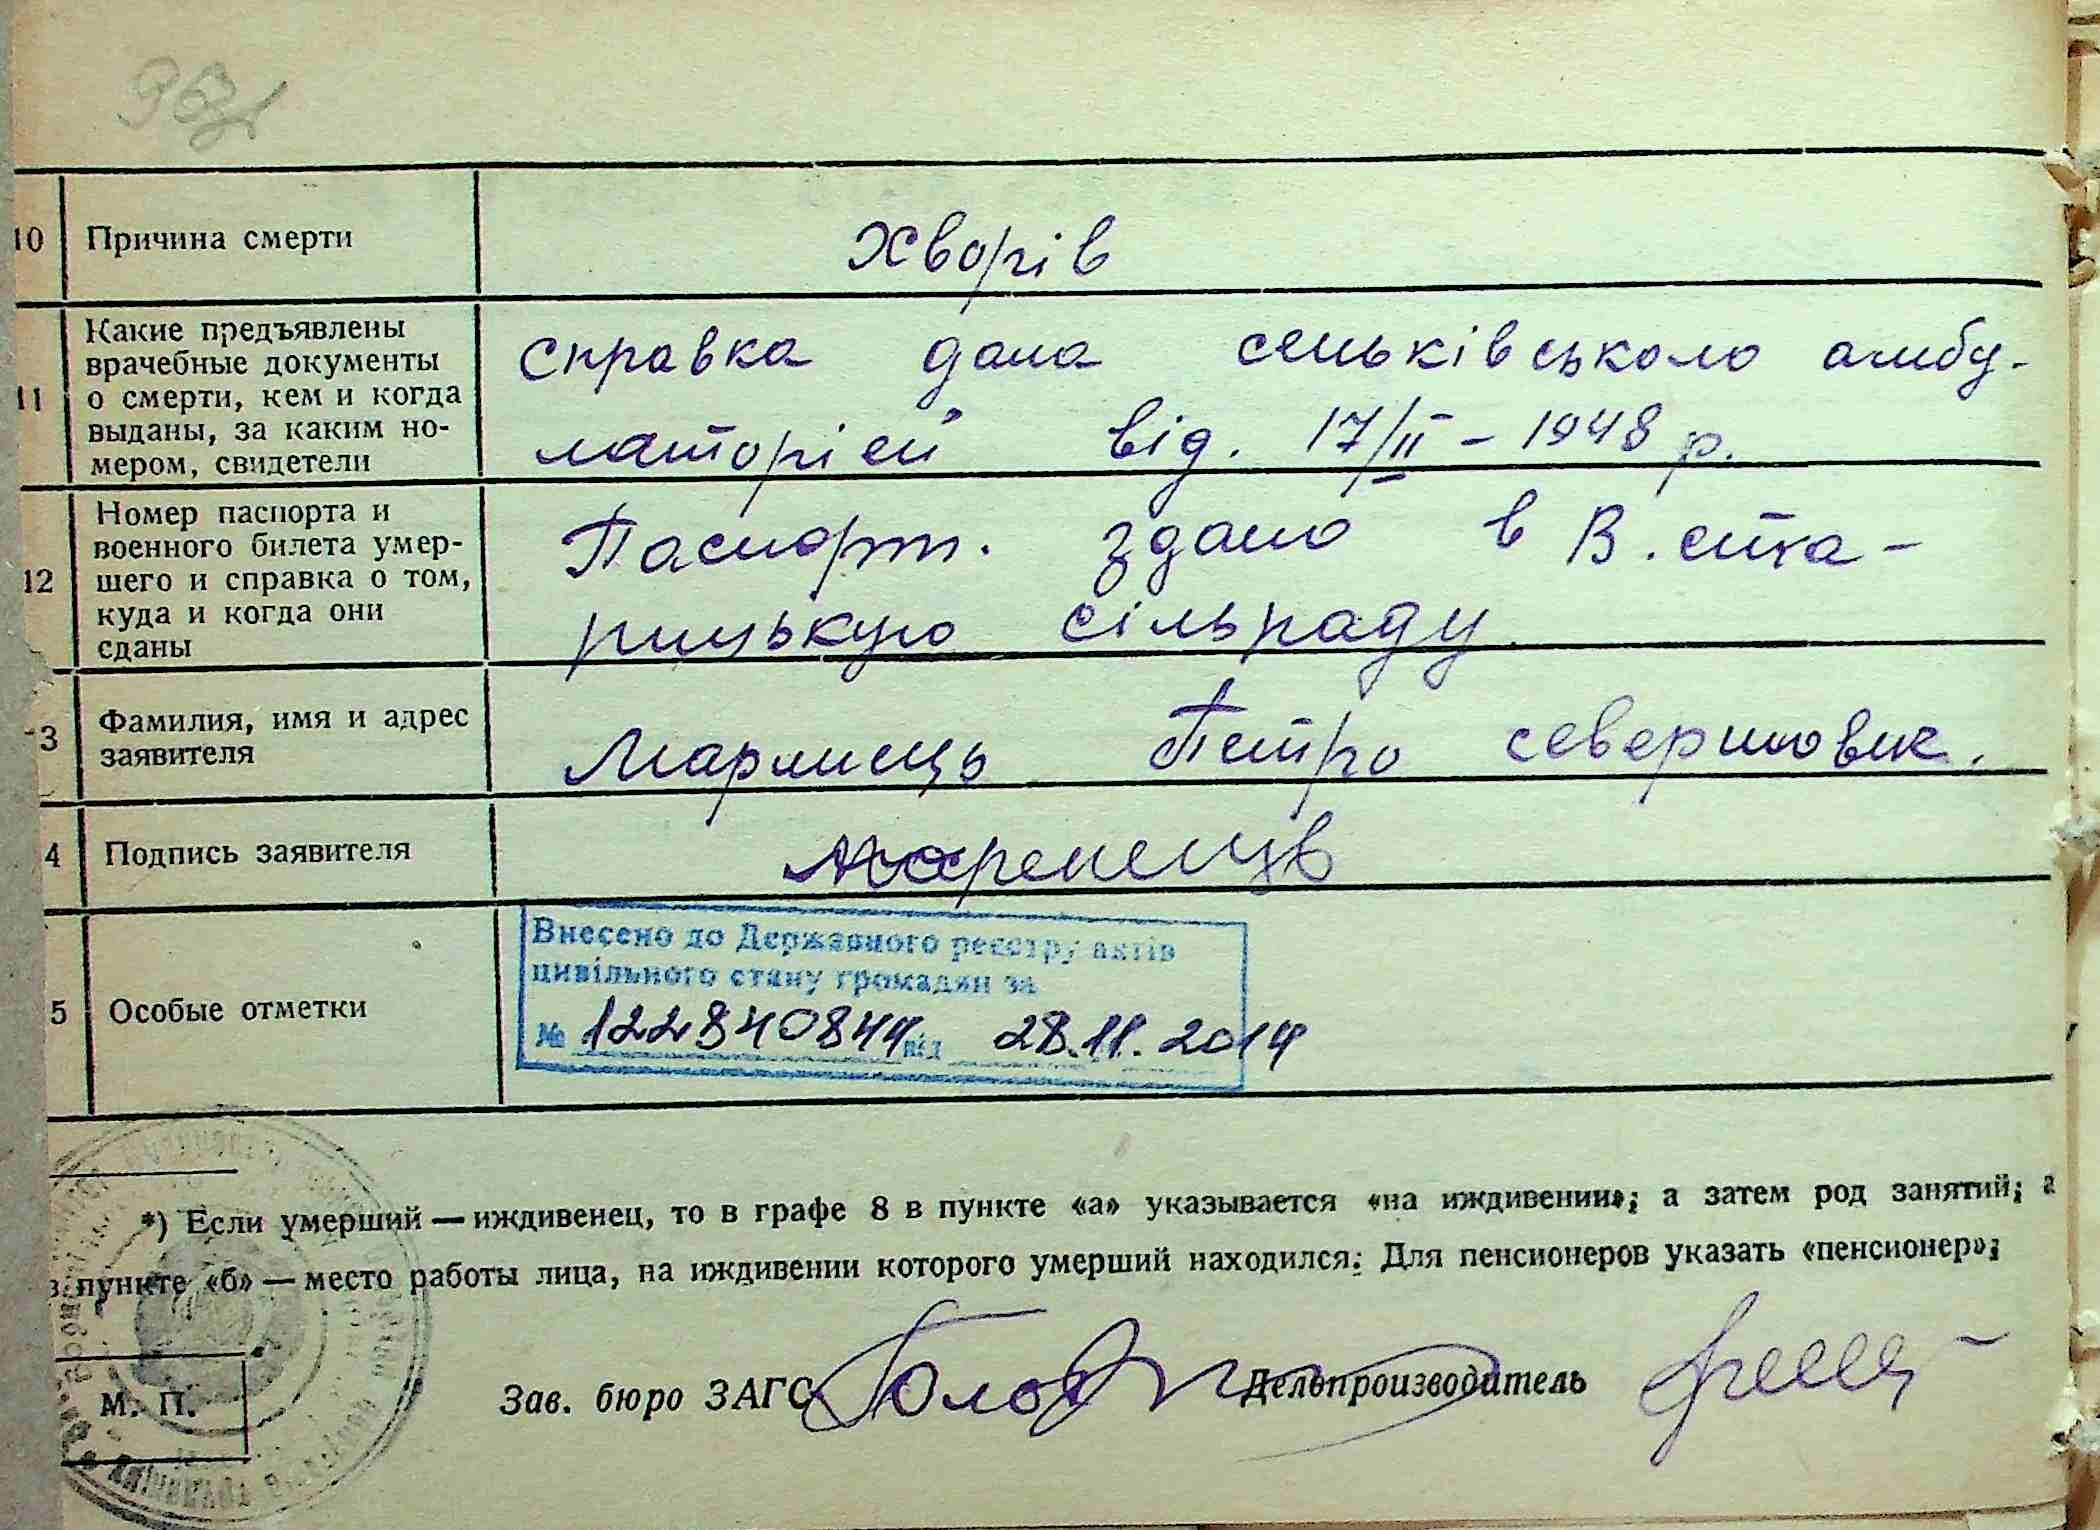 10 Причина смерти
Хворів
11 Какие предъявлены
врачебные документы
о смерти, кем и когда
выданы, за каким но-
мером, свидетели
Справка дана сеньківською амбу-
латорією від. 17/II - 1948 р.
12 Номер паспорта и
военного билета умер-
шего и справка о том,
куда и когда они
сданы
Паспорт. здано в В. ста-
рицькую сільраду
3 Фамилия, имя и адрес
заявителя
Петро
4 Подпись заявителя
5 Особые отметки
Внесено до Державного реєстру актів
цивільного стану громадян за
№ 12284084 від 28.11.2014
*) Если умерший — иждивенец, то в графе 8 в пункте «а» указывается «на иждивении»; а затем род занятий; а
в пункте «б» — место работы лица, на иждивении которого умерший находился. Для пенсионеров указать «пенсионер»;
Зав. бюро ЗАГС Делопроизводитель
М. П.